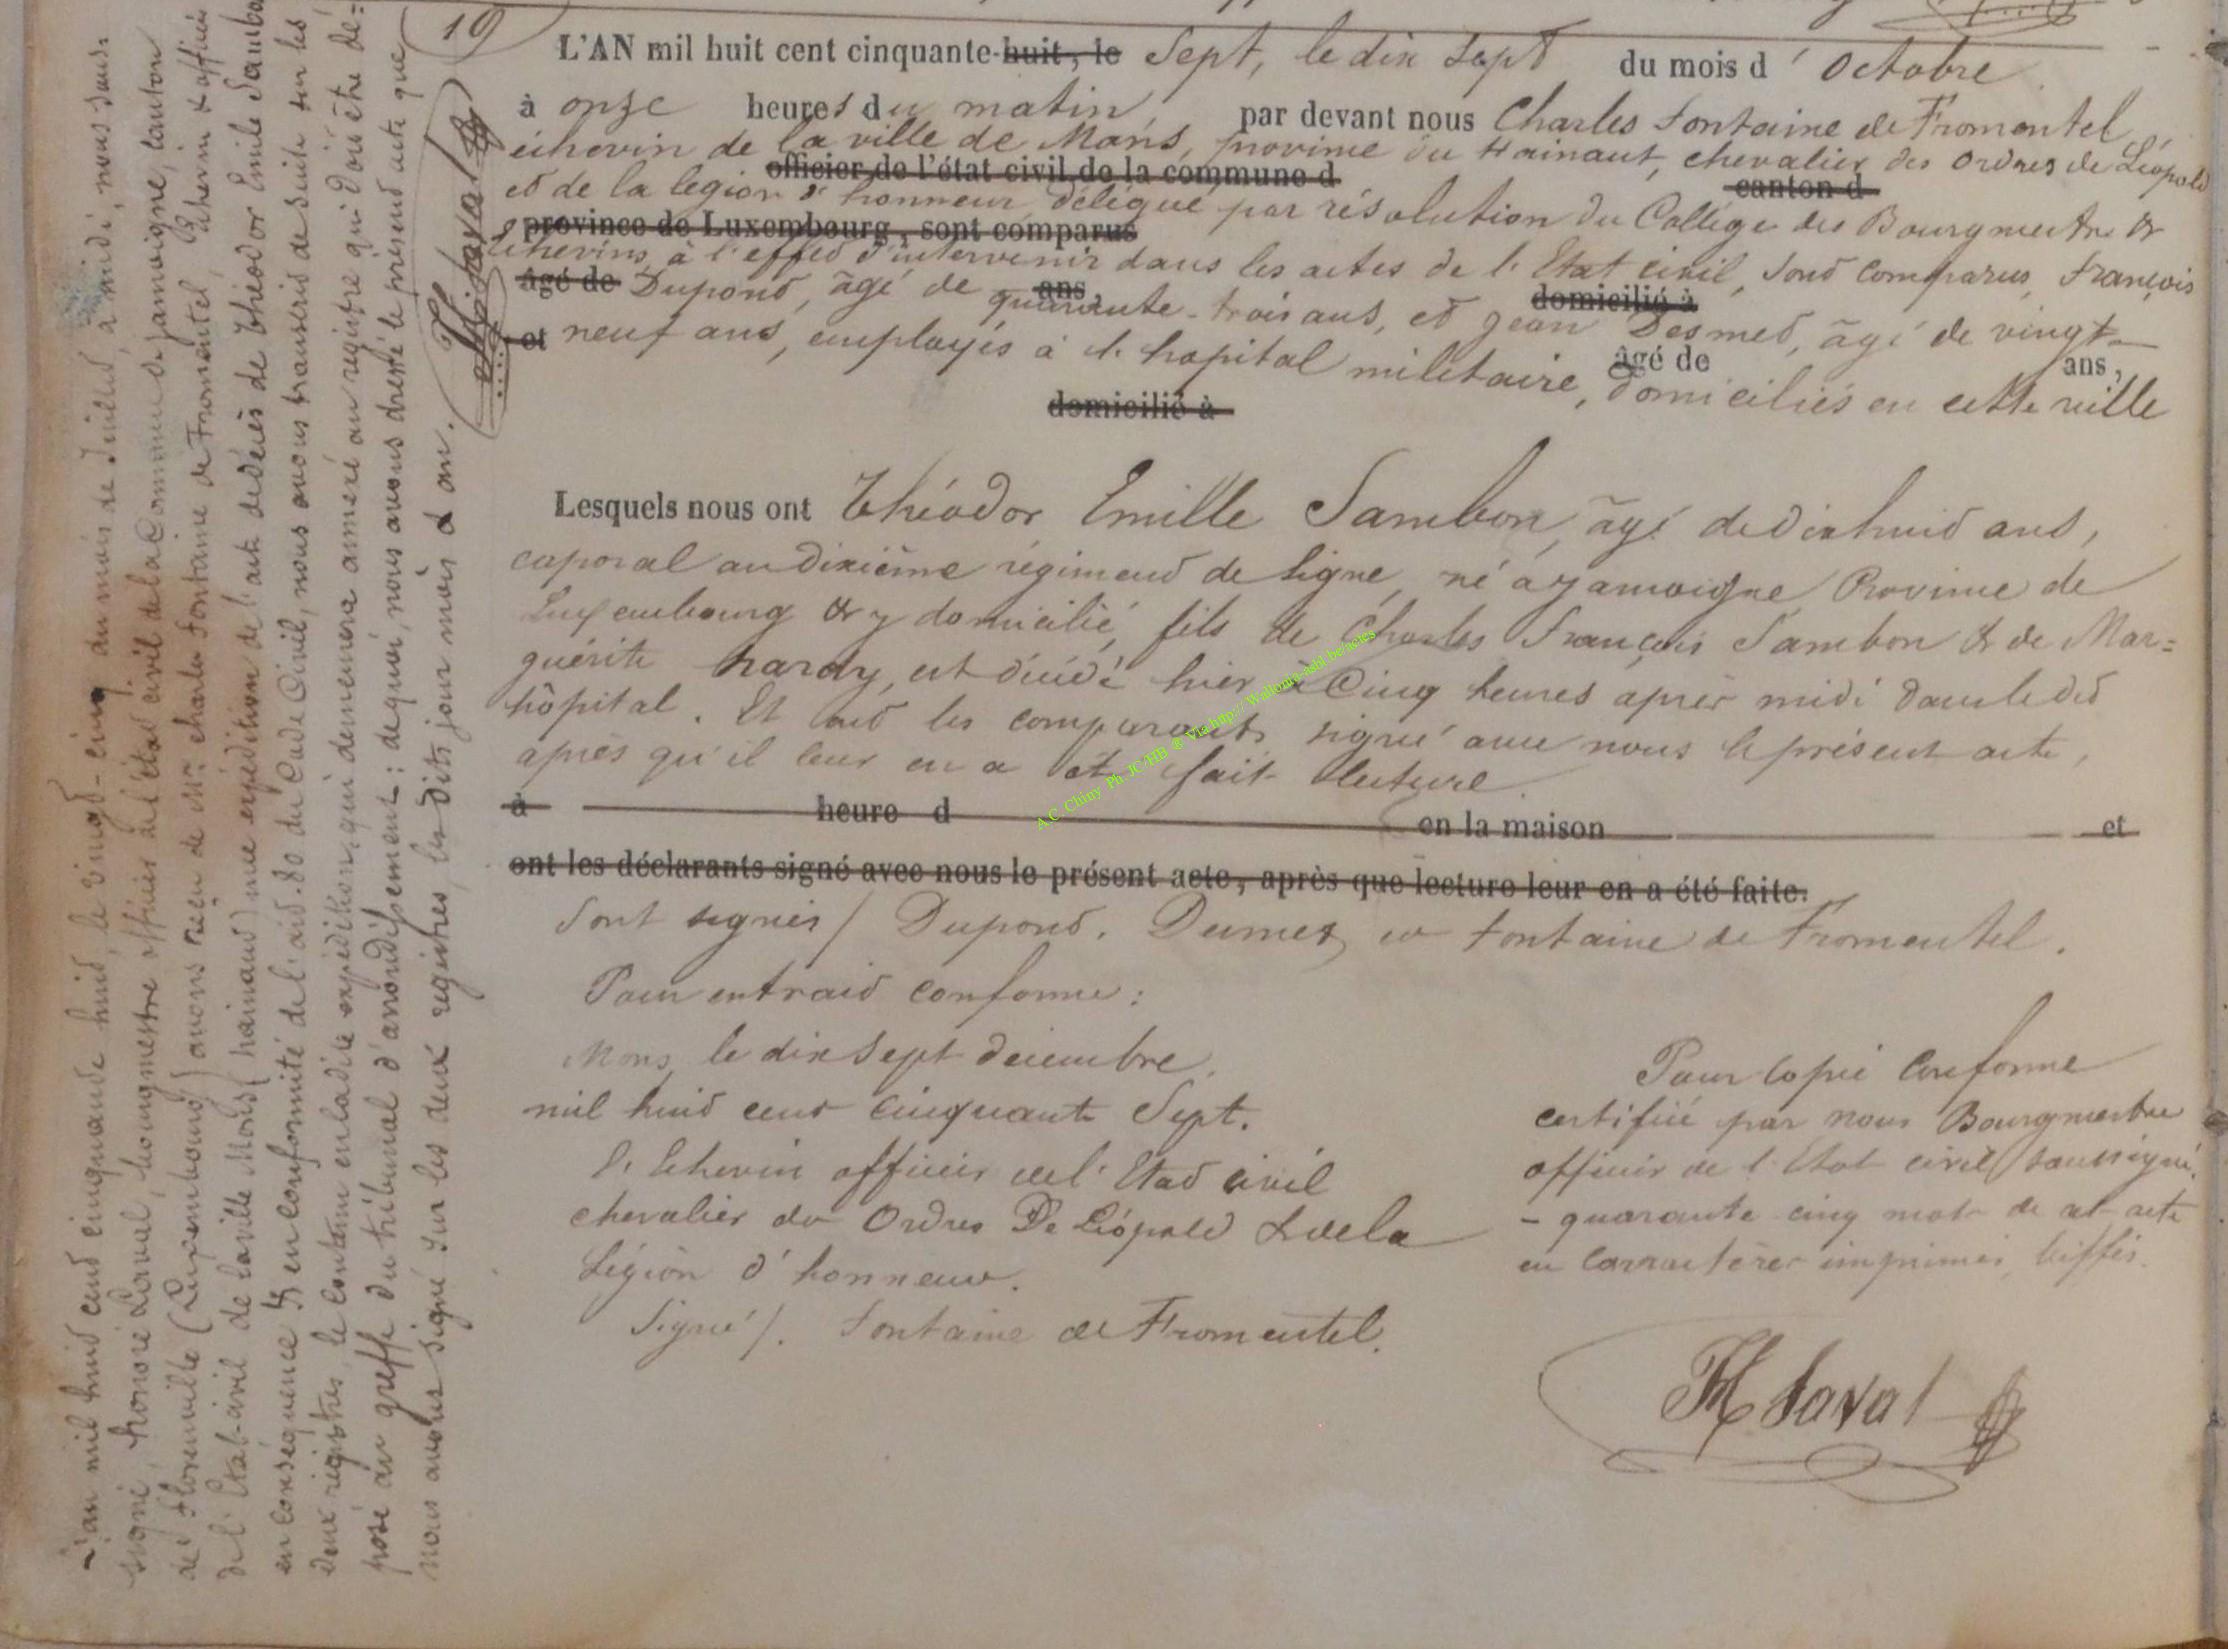 19
L'AN mil huit cent cinquante-huit, le Sept, le dix Sept du mois d' Octobre
à onze heures du matin, par devant nous Charles Fontaine de Fromentel,
échevin de la ville de Mons, province du Hainaut, chevalier des Ordres de Léopold
officier de l'état civil de la commune d canton d
et de la légion d'honneur, délégué par résolution du Collége des Bourgmestre &
province de Luxembourg, sont comparus
Echevins, à l'effet d'intervenir dans les actes de l'Etat civil, sont comparus, François
âgé de Dupond, âgé de quarante-trois ans, et Jean Desmed, âgé de vingt-
ans, domicilié à
et neuf ans, employés à l'hopital militaire, domiciliés en cette ville
âgé de ans,
domicilié à
Lesquels nous ont Théodor Emille Sambon, âgé de dix huid ans,
caporal au dixième régimend de ligne, né à Jamoigne, Province de
Luxembourg & y domicilié, fils de Charles François Sambon & de Mar=
guérite hardy, est décédé hier à Cinq heures après midi dans le dit
hôpital. Et ont les comparants signé avec nous le présent acte,
après qu'il leur en a été fait lecture.
à heure d en la maison et
ont les déclarants signé avec nous le présent acte, après que lecture leur en a été faite.
Sont signés / Dupond. Desmet, et Fontaine de Fromentel.
Pour extraid conforme:
Mons, le dix Sept decembre,
mil huid cent cinquante Sept.
L'Echevin officier de l'Etad civil
chevalier des Ordres De Léopold & de la
Légion d'honneur.
Signé /. Fontaine de Fromentel.
Pour Copie Conforme
certifiée par nous Bourgmestre
officier de l'Etat civil soussigné.
- quarante cinq mots de cet acte
en Carractères imprimés, biffés.
H Laval
L'an mil huid cend cinquande huid, le vingd-cinq du mois de Juilled, à midi, nous sous=
signé, honoré Laval, bourgmestre officier de l'étad civil de la Commune de jamoigne, canton
de Florenville (Luxembourg) avons reçu de Mr. charles Fontaine de Fromentel, Echevin & officier
de l'Etat-civil de la ville Mons (hainaud) une expédition de l'acte de décès de Théodor Emile Sambon
en conséquence & en conformité de l'aid. 80 du Code Civil, nous avons transcrid de suite sur les
deux régistres, le contenu en ladite expédition, qui demeurera annexé au régistre qui doit être dé=
posé au greffe du tribunal d'arrondissement: de quoi, nous avons dressé le présend acte que
nous avons signé sur les deux registres, les dits jour mois & an.
H Laval
A.C Chiny Ph. JC/HB @ Via http://Wallonia-asbl.be/actes